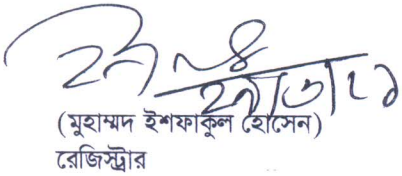 (মুহাম্মদ ইশফাকুল হোসেন)
রেজিস্ট্রার